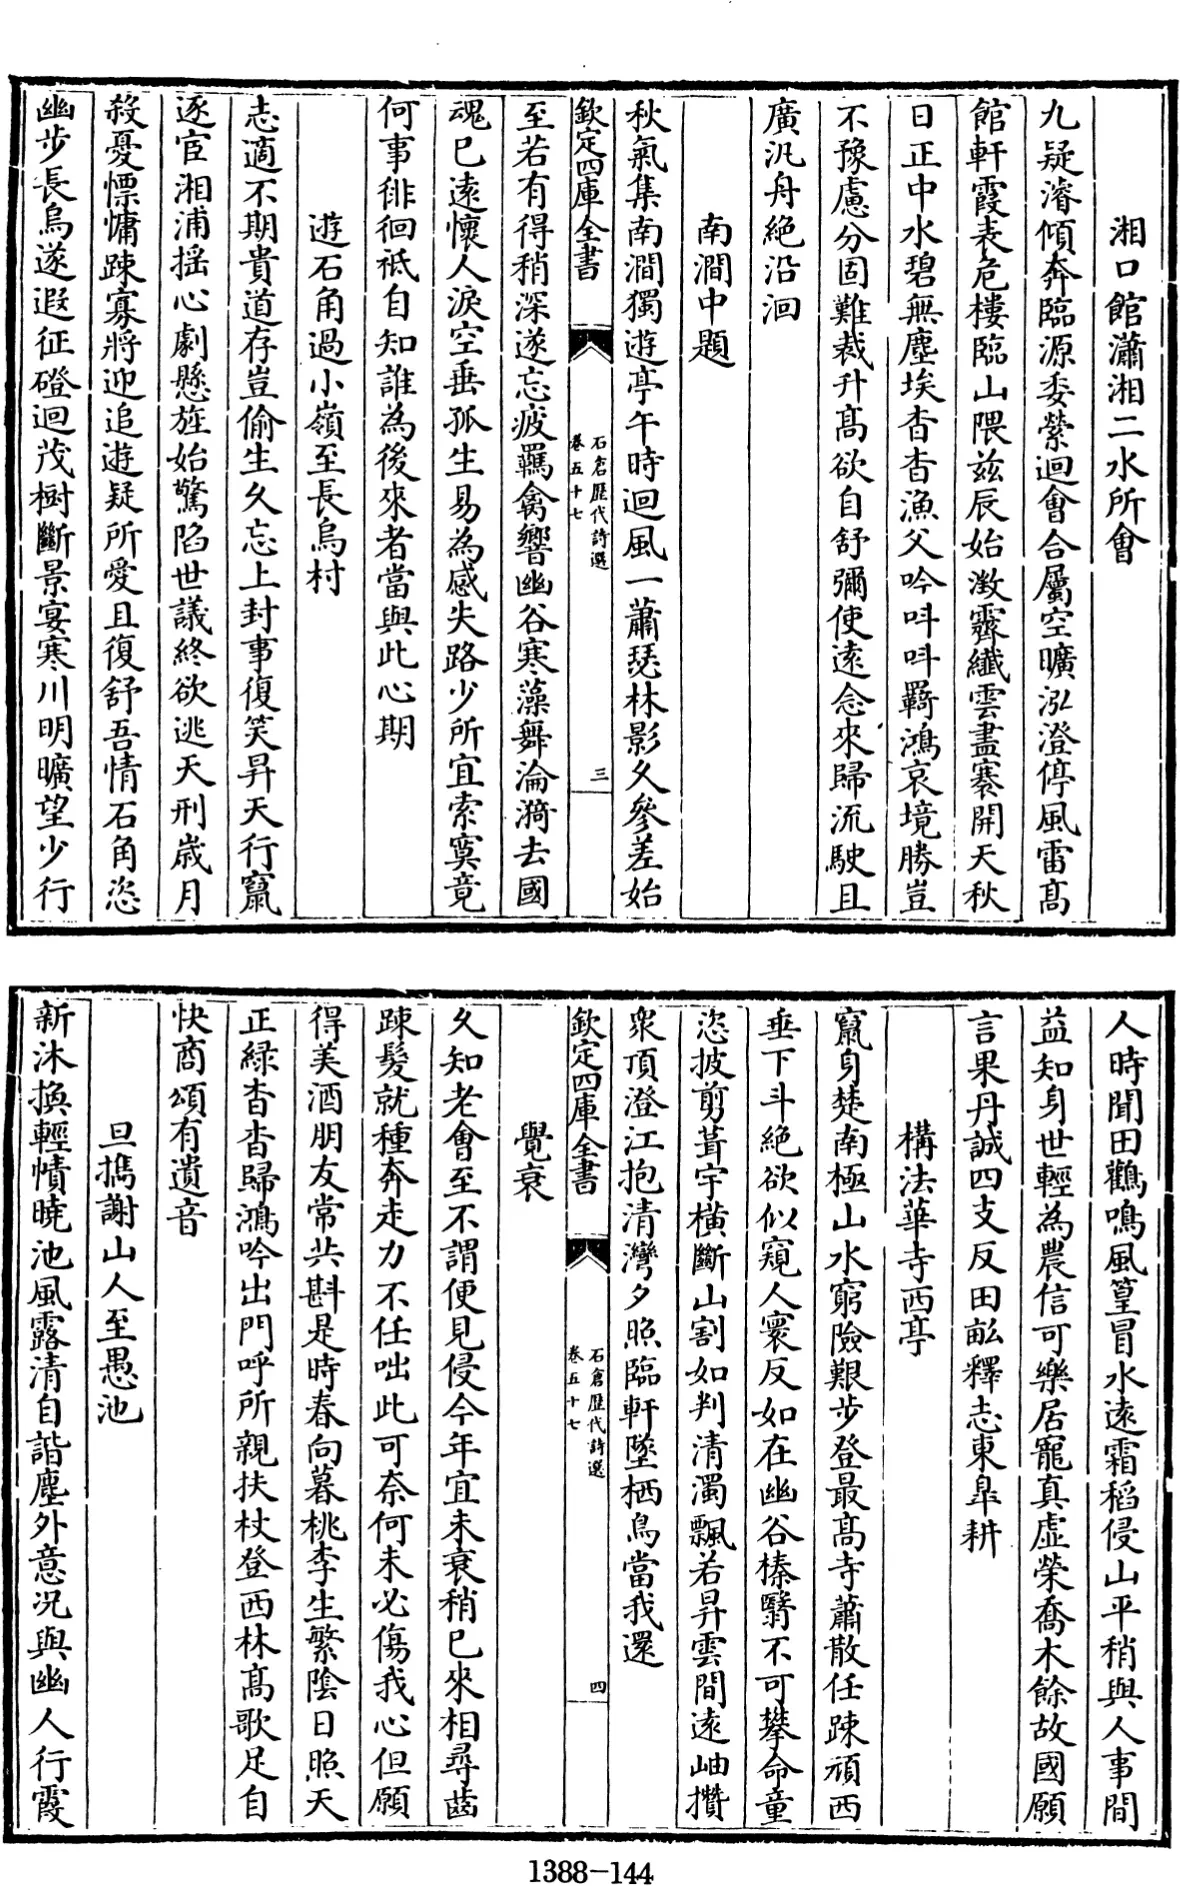 湘口館瀟湘二水所會
九疑濬傾奔臨源委縈迴會合屬空曠泓澄停風雷高
館軒霞表危樓臨山隈兹辰始澂霽纖雲盡褰開天秋
日正中水碧無塵埃杳杳漁父吟叫叫羇鴻哀境勝豈
不豫慮分固難裁升高欲自舒彌使遠念來歸流駛且
廣汎舟絶沿洄
南澗中題
秋氣集南澗獨遊亭午時迴風一蕭瑟林影久參差始
欽定四庫全書
石倉歷代詩選
卷五十七
三
至若有得稍深遂忘疲羈禽響幽谷寒藻舞淪漪去國
魂已遠懷人淚空垂孤生易為感失路少所宜索寞竟
何事徘徊祗自知誰為後來者當與此心期
遊石角過小嶺至長烏村
志適不期貴道存豈偷生久忘上封事復笑昇天行竄
逐宦湘浦揺心劇懸旌始驚陷世議終欲逃天刑歲月
殺憂慄慵踈寡將迎追遊疑所愛且復舒吾情石角恣
幽步長烏遂遐征磴迴茂樹斷景宴寒川明曠望少行
人時聞田鸛鳴風篁冒水遠霜稻侵山平稍與人事間
益知身世輕為農信可樂居寵真虚榮喬木餘故國願
言果丹誠四支反田畝釋志東臯耕
構法華寺西亭
竄身楚南極山水窮險艱步登最高寺蕭散任踈頑西
垂下斗絶欲似窺人寰反如在幽谷榛翳不可攀命童
恣披剪葺宇横斷山割如判清濁飄若昇雲間遠岫攢
衆頂澄江抱清灣夕照臨軒墜栖鳥當我還
欽定四庫全書
石倉歷代詩選
卷五十七
四
覺衰
久知老會至不謂便見侵今年宜未衰稍已來相尋齒
踈髮就種奔走力不任咄此可奈何未必傷我心但願
得美酒朋友常共斟是時春向暮桃李生繁陰日照天
正緑杳杳歸鴻吟出門呼所親扶杖登西林高歌足自
快商頌有遺音
旦攜謝山人至愚池
新沐換輕幘曉池風露清自諧塵外意况與幽人行霞
1388-144